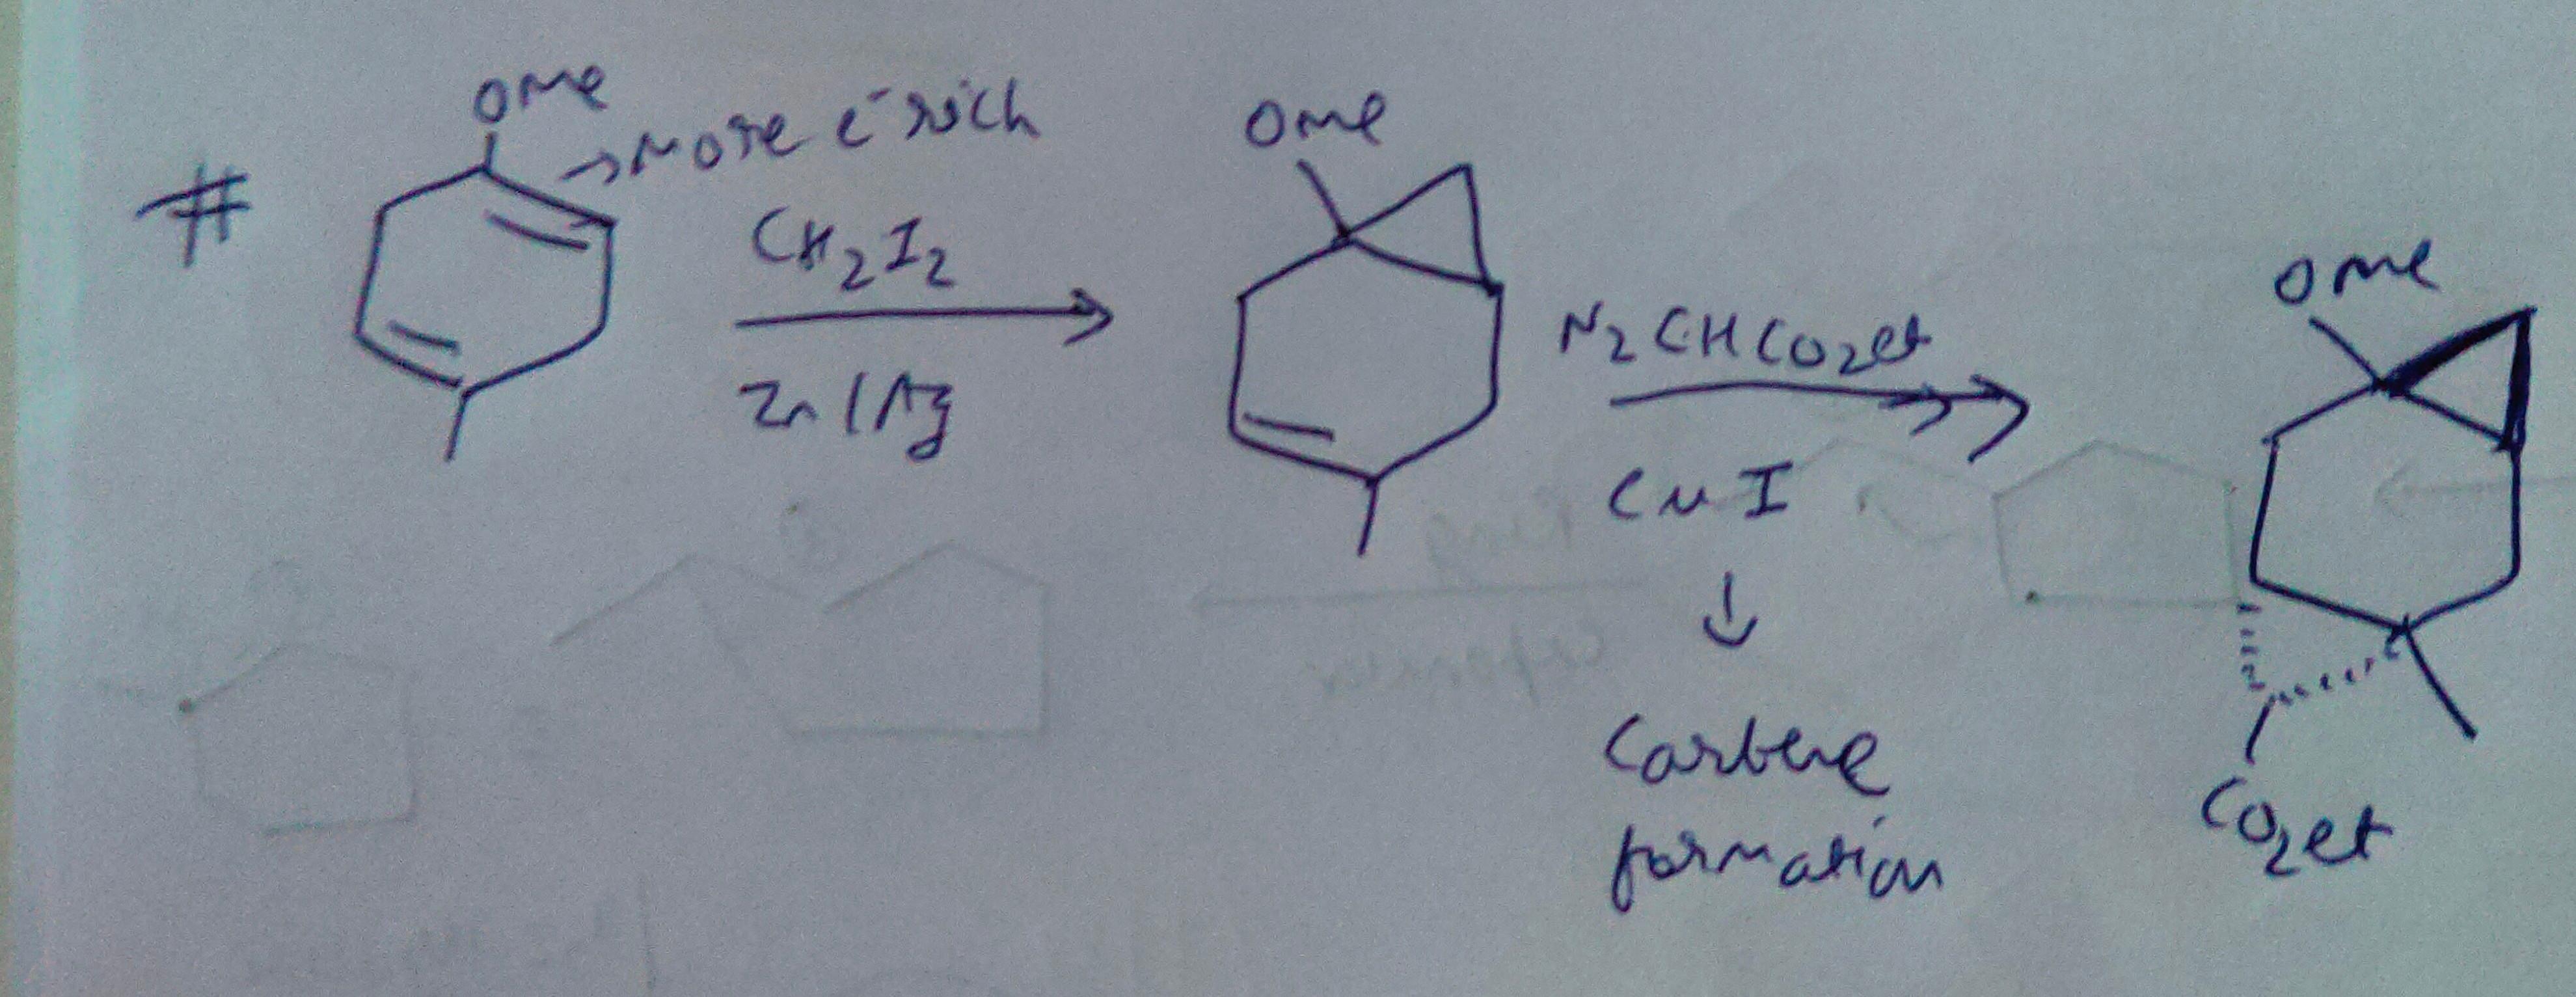 #
OMe
→ More e⁻ rich
CH2I2
Zn/Ag
OMe
N2CHCO2et
CuI
↓
Carbene
formation
OMe
CO2et